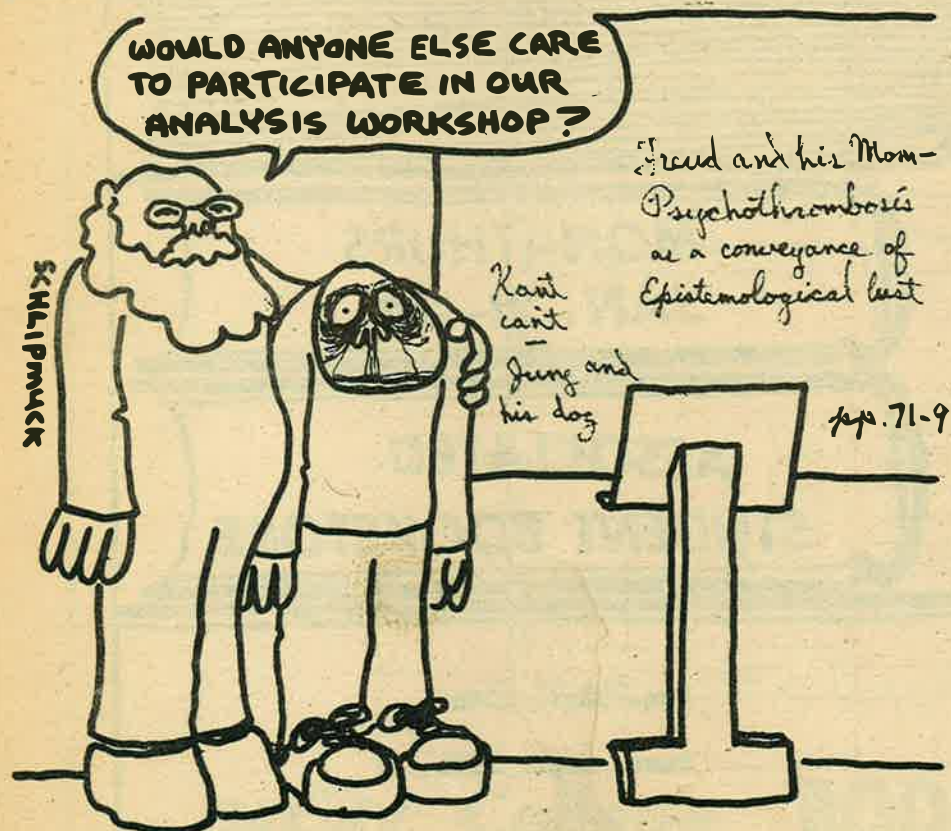 WOULD ANYONE ELSE CARE
TO PARTICIPATE IN OUR
ANALYSIS WORKSHOP?
Freud and his Mom-
Psychothrombosis
as a conveyance of
Epistemological lust
Kant
can't
—
Jung and
his dog
pp. 71-9
SCHLIPMUCK